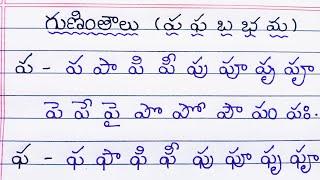 గుణింతాలు (ప ఫ బ భ మ)
ప - ప పా పి పీ పు పూ పృ పౄ
పె పే పై పొ పో పౌ పం పః.
ఫ - ఫ ఫా ఫి ఫీ ఫు ఫూ ఫృ ఫౄ